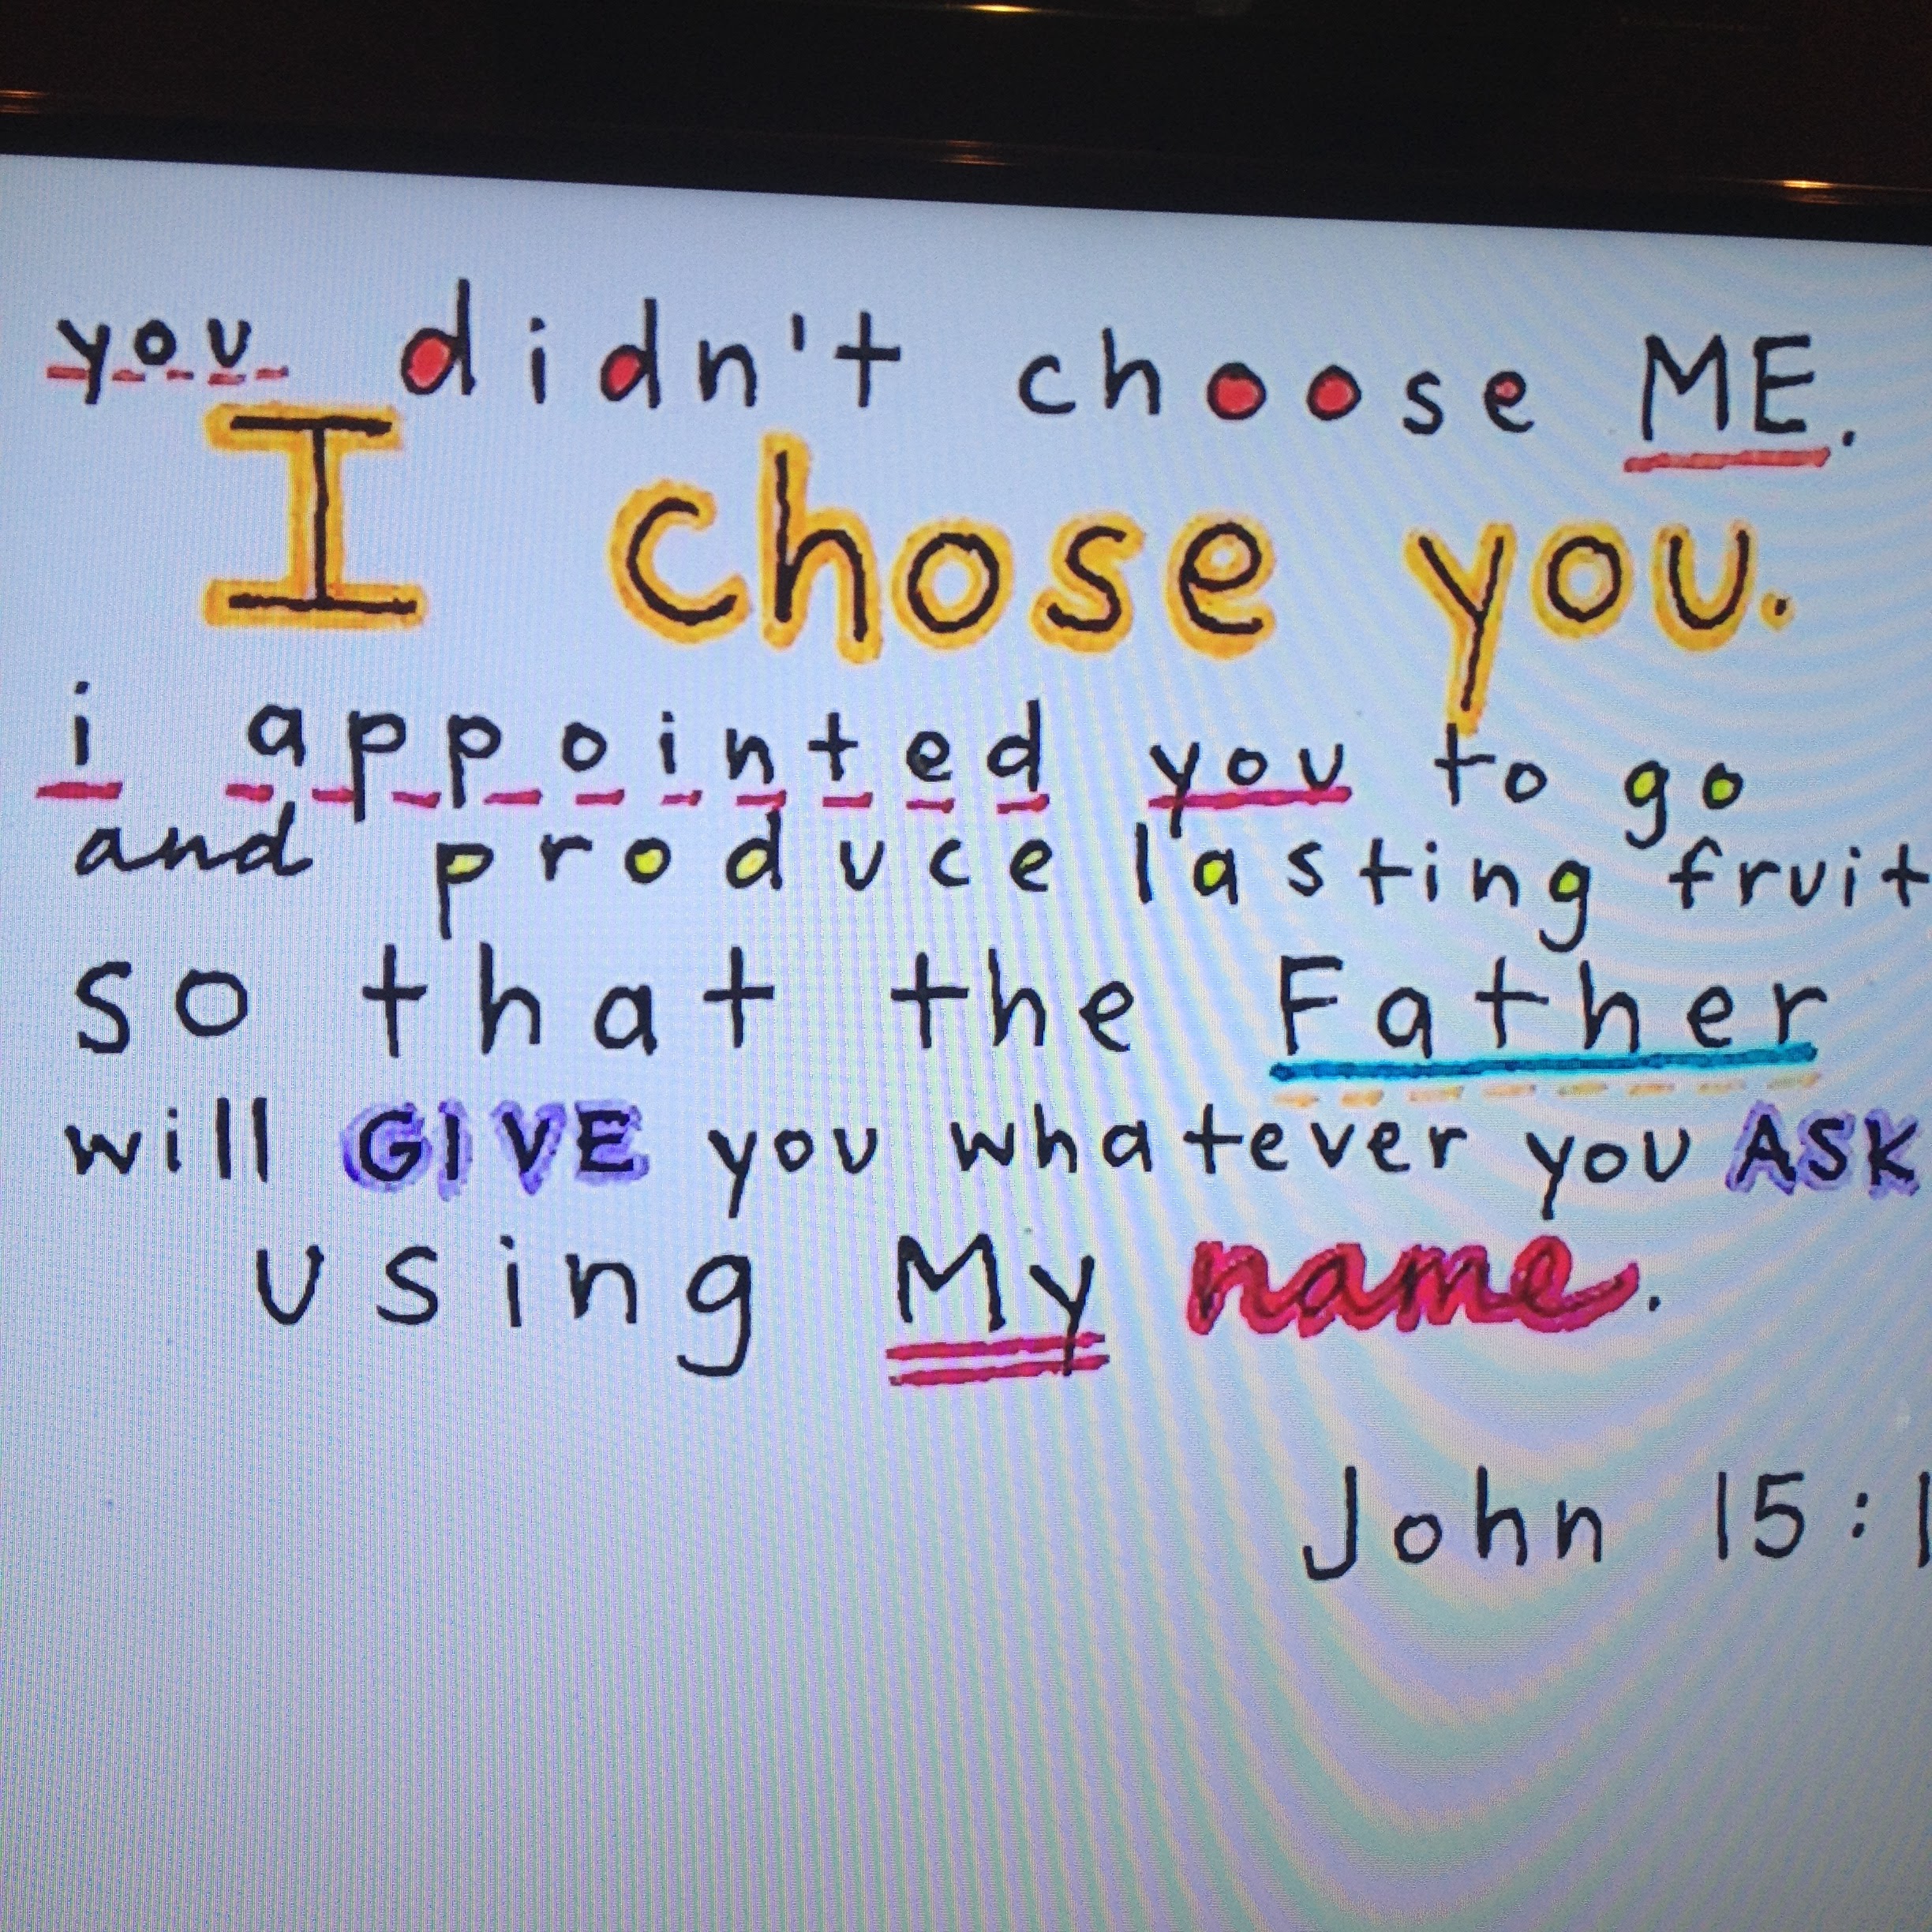 you didn't choose ME.
I chose you.
i appointed you to go
and produce lasting fruit
so that the Father
will GIVE you whatever you ASK
using My name.
John 15:1